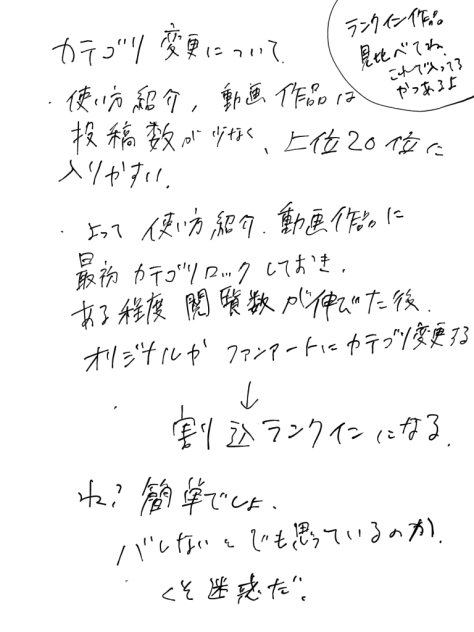 カテゴリ変更について
ランクイン作品。
見比べてね。
これで入ってる
やつあるよ
・使い方紹介、動画作品は
投稿数が少なく、上位20位に
入りやすい。
・よって使い方紹介、動画作品に
最初カテゴリロックしておき、
ある程度閲覧数が伸びた後、
オリジナルかファンアートにカテゴリ変更する
↓
割り込ランクインになる。
ね？簡単でしょ。
バレないとでも思っているのか。
くそ迷惑だ。